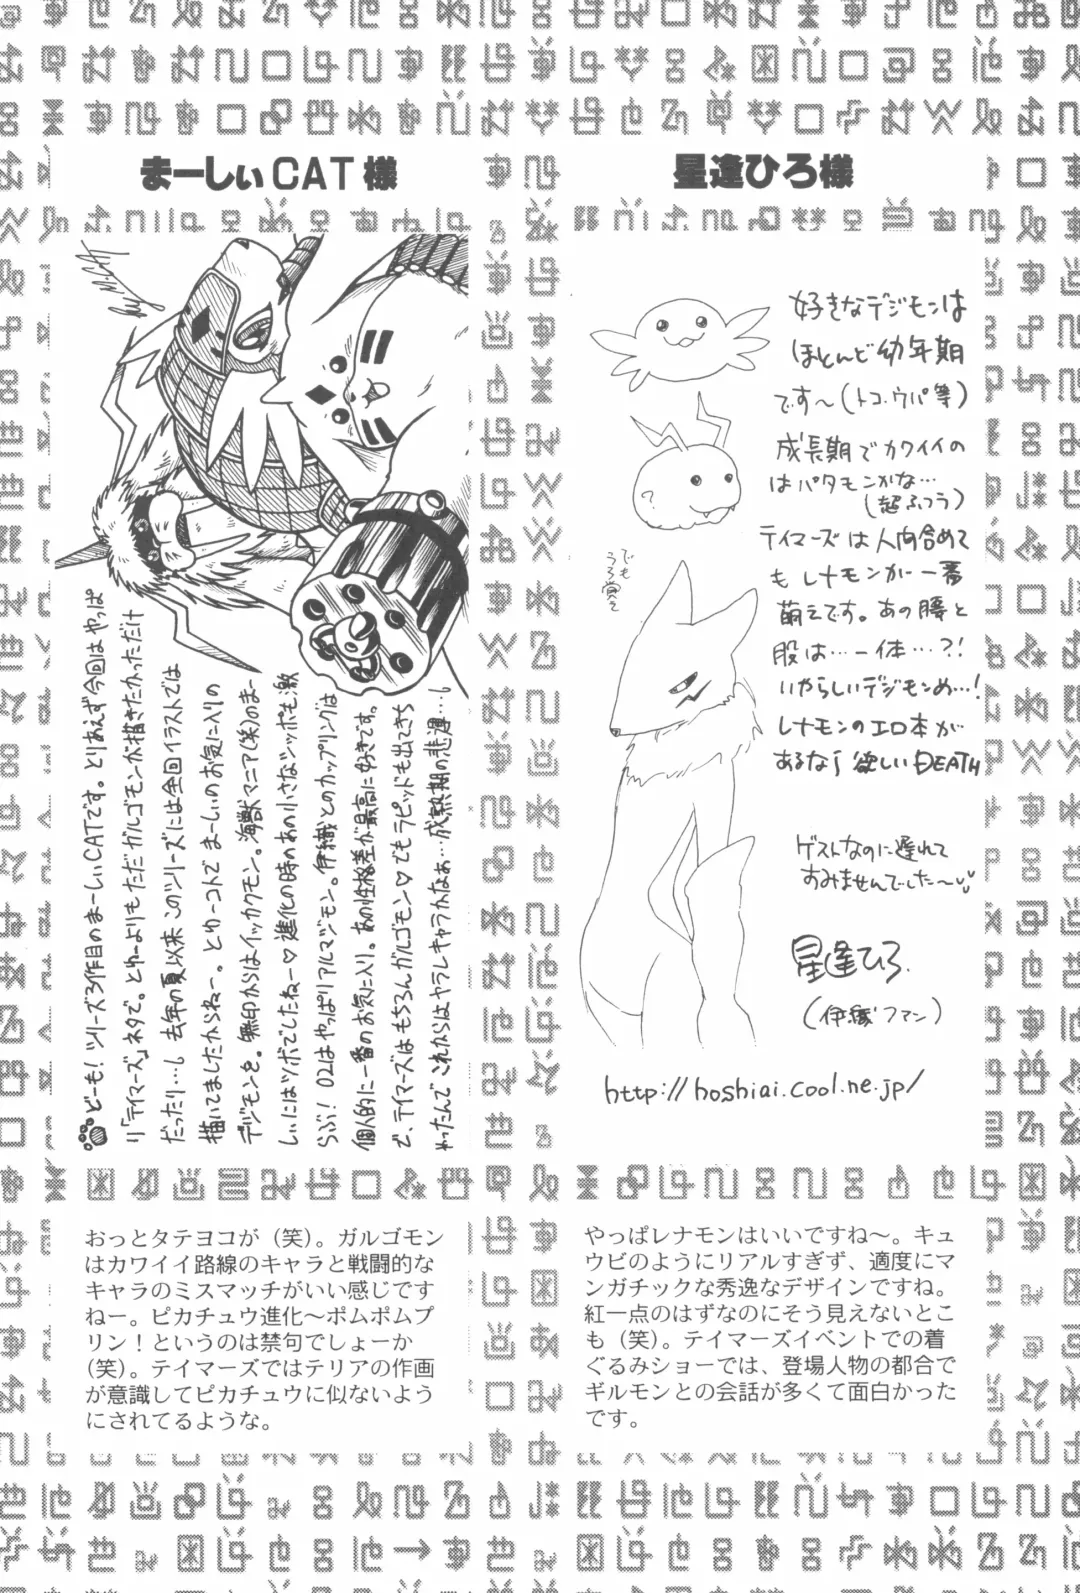 まーしぃCAT様
どーも！シリーズ3作目のまーしぃCATです。とりあえず今回はやっぱ
り「テイマーズ」ネタで。とゆーよりもただガルゴモンが描きたかっただけ
だったり…。去年の夏以来このシリーズには全回イラストでは
描いてましたからねー。とゆーコトで まーしぃのお気に入りの
デジモンを。無印からはイッカクモン。海獣マニア(笑)のまー
しぃにはツボでしたねー♡進化の時のあの小さなシッポも激
らぶ！02はやっぱりアルマジモン。伊織とのカップリングは
個人的に一番のお気に入り。あの性格差が最高に好きです。
で、テイマーズはもちろんガルゴモン♡でもラピッドも出てきち
ゃったんで これからはヤラレキャラかなぁ…成熟期の悲運…。
おっとタテヨコが（笑）。ガルゴモン
はカワイイ路線のキャラと戦闘的な
キャラのミスマッチがいい感じです
ねー。ピカチュウ進化～ポムポムプ
リン！というのは禁句でしょーか
（笑）。テイマーズではテリアの作画
が意識してピカチュウに似ないよう
にされてるような。
星逢ひろ様
好きなデジモンは
ほとんど幼年期
です～（トコ、ウパ等）
成長期でカワイイの
はパタモンかな…
（超ふつう）
テイマーズは人間含めて
もレナモンが一番
萌えです。あの腰と
股は…一体…?!
いやらしいデジモンめ…！
レナモンのエロ本が
あるなら欲しいDEATH
でも
うろ覚え
ゲストなのに遅れて
すみませんでした～
星逢ひろ.
（伊織ファン）
http://hoshiai.cool.ne.jp/
やっぱレナモンはいいですね～。キュ
ウビのようにリアルすぎず、適度にマ
ンガチックな秀逸なデザインですね。
紅一点のはずなのにそう見えないとこ
も（笑）。テイマーズイベントでの着
ぐるみショーでは、登場人物の都合で
ギルモンとの会話が多くて面白かった
です。